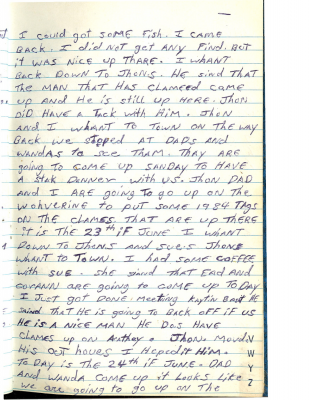 I could got some Fish. I came
Back. I did not get any Find. But
it was nice up Thare. I whant
Back Down To Jhons. He sind That
The man That Has Clameed came
up and He is still up Here. Jhon
Did Have a Tack with Him. Jhon
and I whant To Town on The way
Back we stopped at Dads and
Wandas To see Tham. Thay are
going To come up Sanday To Have
a Stak Danner with us. Jhon Dad
and I are going To go up on The
Wohverine To put some 1984 Tags
on The Clames That are up There
it is The 23th if June I whant
Down To Jhons and Sue's Jhone
whant To Town. I Had some Coffee
with Sue. She sind That Earl and
are going To come up To Day
I Just got Done meeting He
sained That He is going To Back off if us
He is a nice man He Dos Have
Clames up on Jhon
His out hours I Hepced it Him.
To Day is The 24th if June. Dad
and Wanda come up it Looks Like
we are going To go up on The